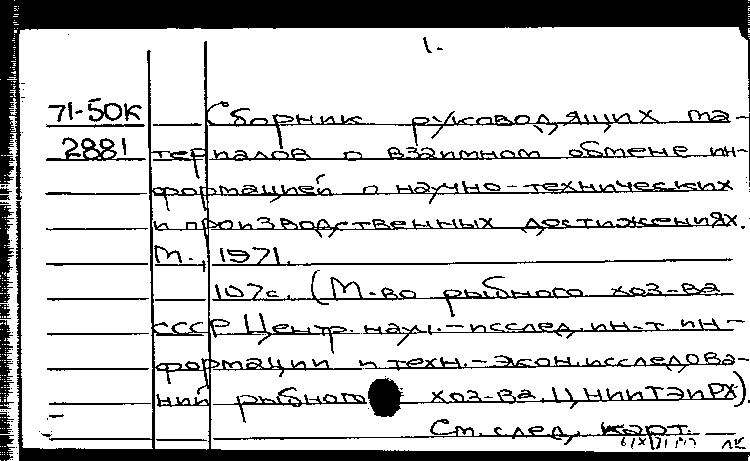 1.
71-50К Сборник руководящих ма-
2881 териалов о взаимном обмене ин-
формацией о научно-технических
и производственных достижениях.
М., 1971.
107с. (М-во рыбного хоз-ва
СССР Центр. науч.-исслед. ин-т ин-
формации и техн.-экон. исследова-
ний рыбного хоз-ва. ЦНИИТЭИРХ).
См. след. карт.
ЛК